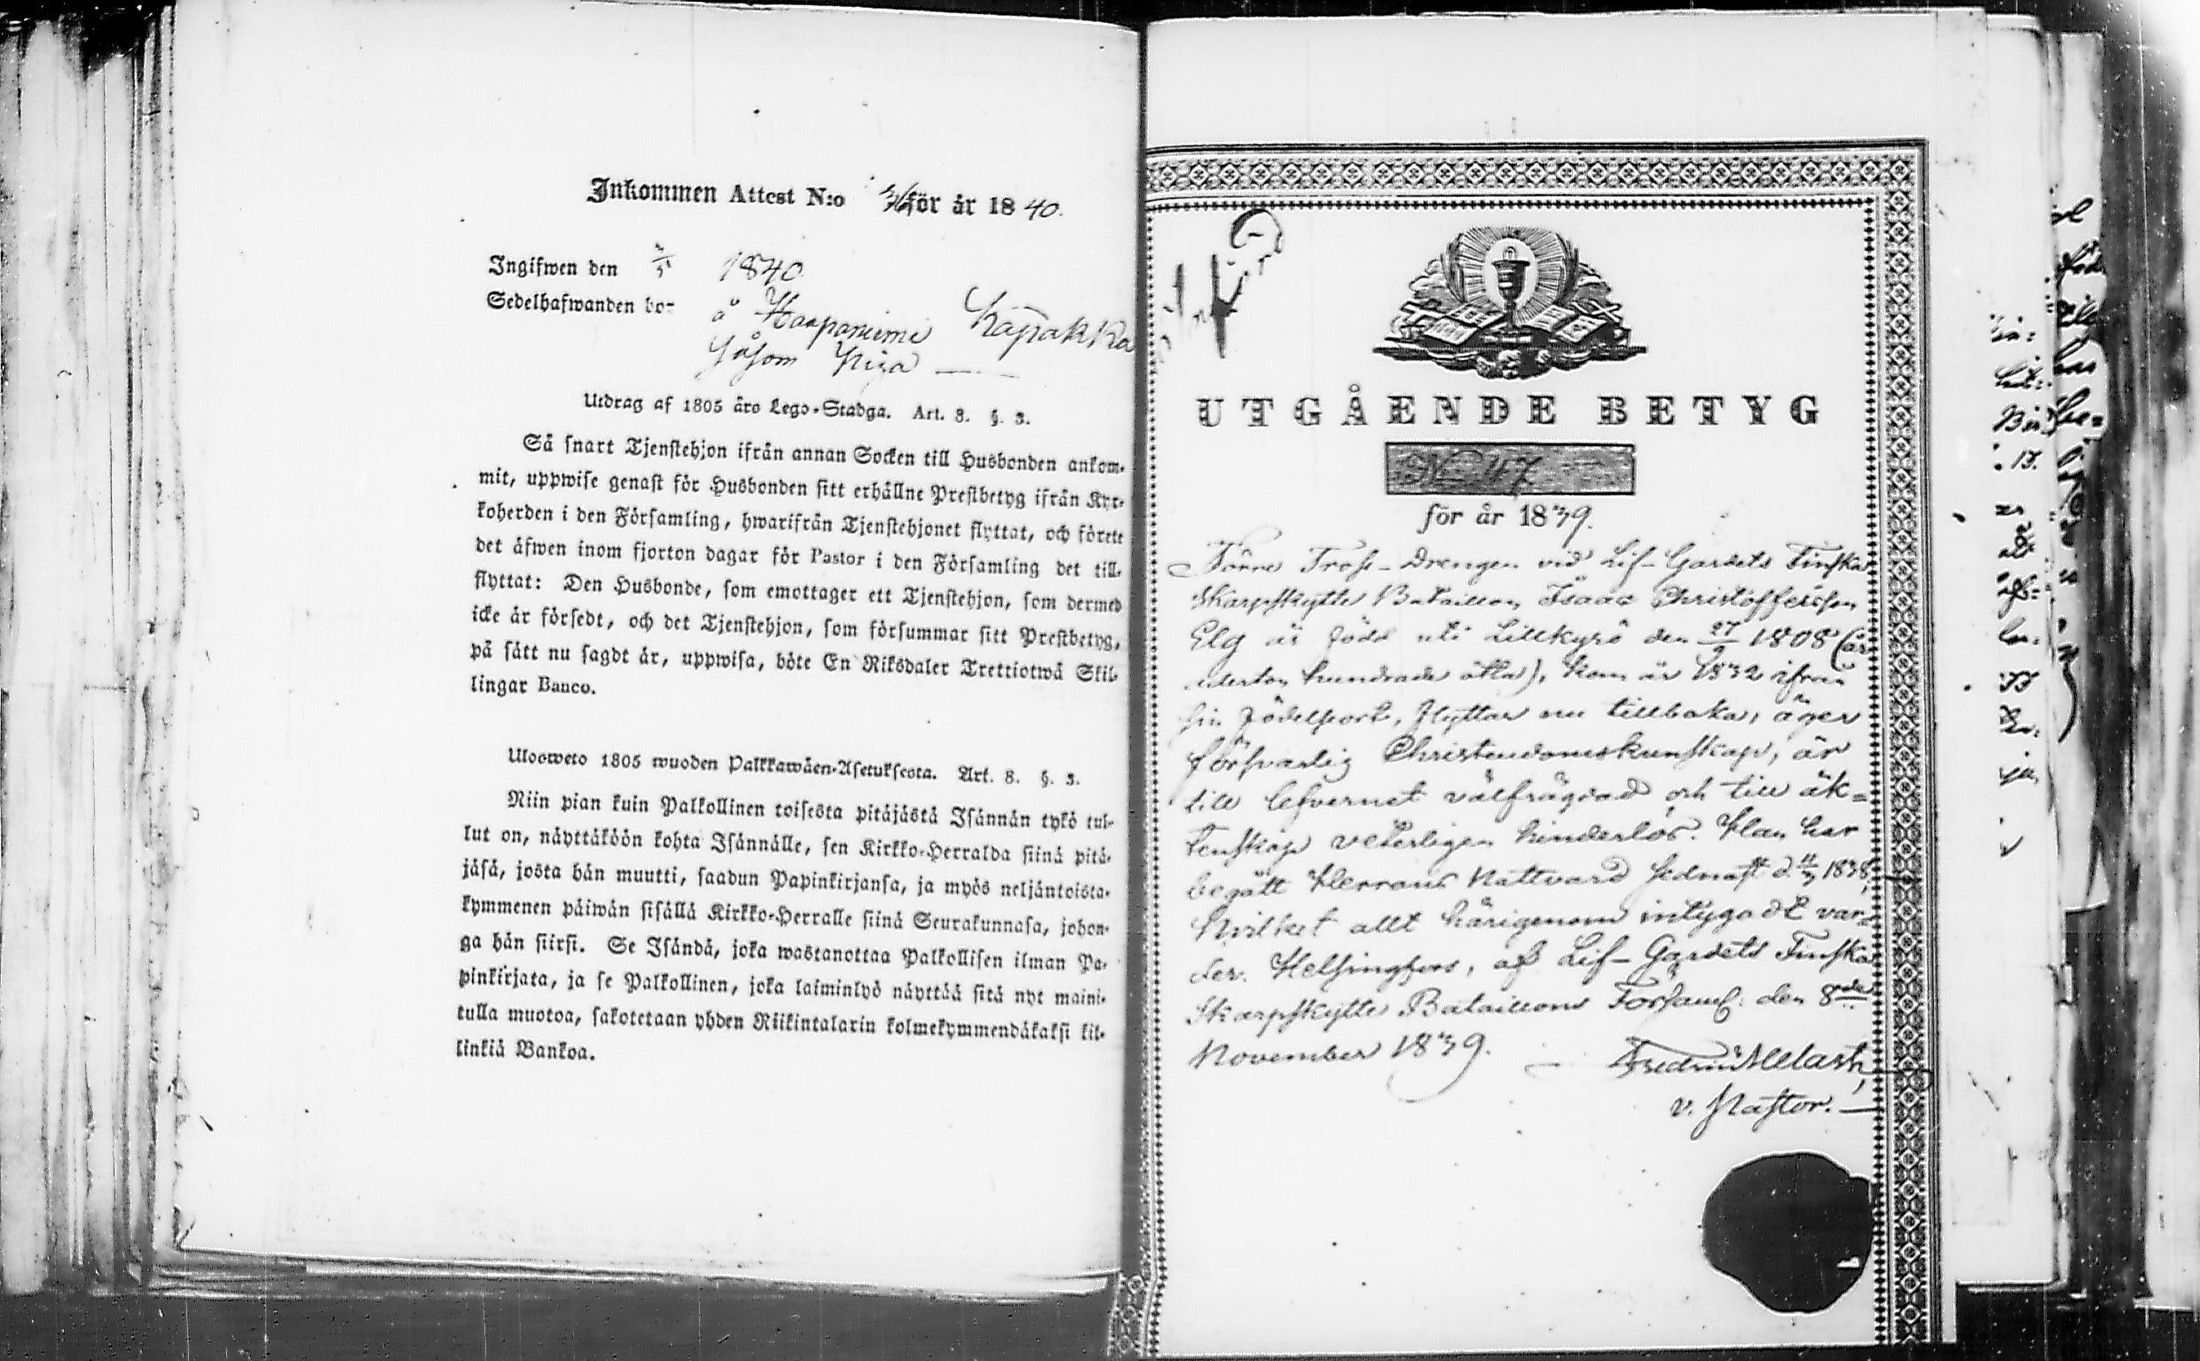 Inkommen Attest N:o 36 för år 1840.
Ingifwen den 3/5 1840
Sedelhafwanden bo-
å Haapaniemi Kapakka
såsom Piga
Utdrag af 1805 års Lego-Stadga. Art. 8. §. 3.
Så snart Tjenstehjon ifrån annan Socken till Husbonden ankom-
mit, uppwise genast för Husbonden sitt erhållne Prestbetyg ifrån Kyr-
koherden i den Församling, hwarifrån Tjenstehjonet flyttat, och förete
det äfwen inom fjorton dagar för Pastor i den Församling det till-
flyttat: Den Husbonde, som emottager ett Tjenstehjon, som dermed
icke är försedt, och det Tjenstehjon, som försummar sitt Prestbetyg,
på sätt nu sagdt är, uppwisa, böte En Riksdaler Trettiotwå Skil-
lingar Banco.
Uloosweto 1805 wuoden Palkkawäen-Asetuksesta. Art. 8. §. 3.
Niin pian kuin Palkollinen toisesta pitäjästä Isännän tykö tul-
lut on, näyttäköön kohta Isännälle, sen Kirkko-Herralda siinä pitä-
jäsä, josta hän muutti, saadun Papinkirjansa, ja myös neljäntoista-
kymmenen päiwän sisällä Kirkko-Herralle siinä Seurakunnasa, johon-
ga hän siirsi. Se Isändä, joka wastanottaa Palkollisen ilman Pa-
pinkirjata, ja se Palkollinen, joka laiminlyö näyttää sitä nyt maini-
tulla muotoa, sakotetaan yhden Riikintalarin kolmekymmendäkaksi kil-
linkiä Bankoa.
UTGÅENDE BETYG
No 47
för år 1839.
Förre Tross-Drengen vid Lif-Gardets Finska
Skarpskytte Bataillon Isaac Christoffersson
Elg är född uti Lillkyro den 27/9 1808 (ar
aderton hundrade åtta), kom år 1832 ifrån
sin födelseort, flyttar nu tillbaka, äger
försvarlig Christendomskunskap, är
till lefvernet välfrägdad och till äk-
tenskap veterligen hinderlös. Han har
begått Herrans Nattvard sednast d. 11/3 1838,
hvilket allt härigenom intygadt var-
der. Helsingfors, af Lif-Gardets Finska
Skarpskytte Bataillons Församl: den 8de
November 1839.
v. Pastor.